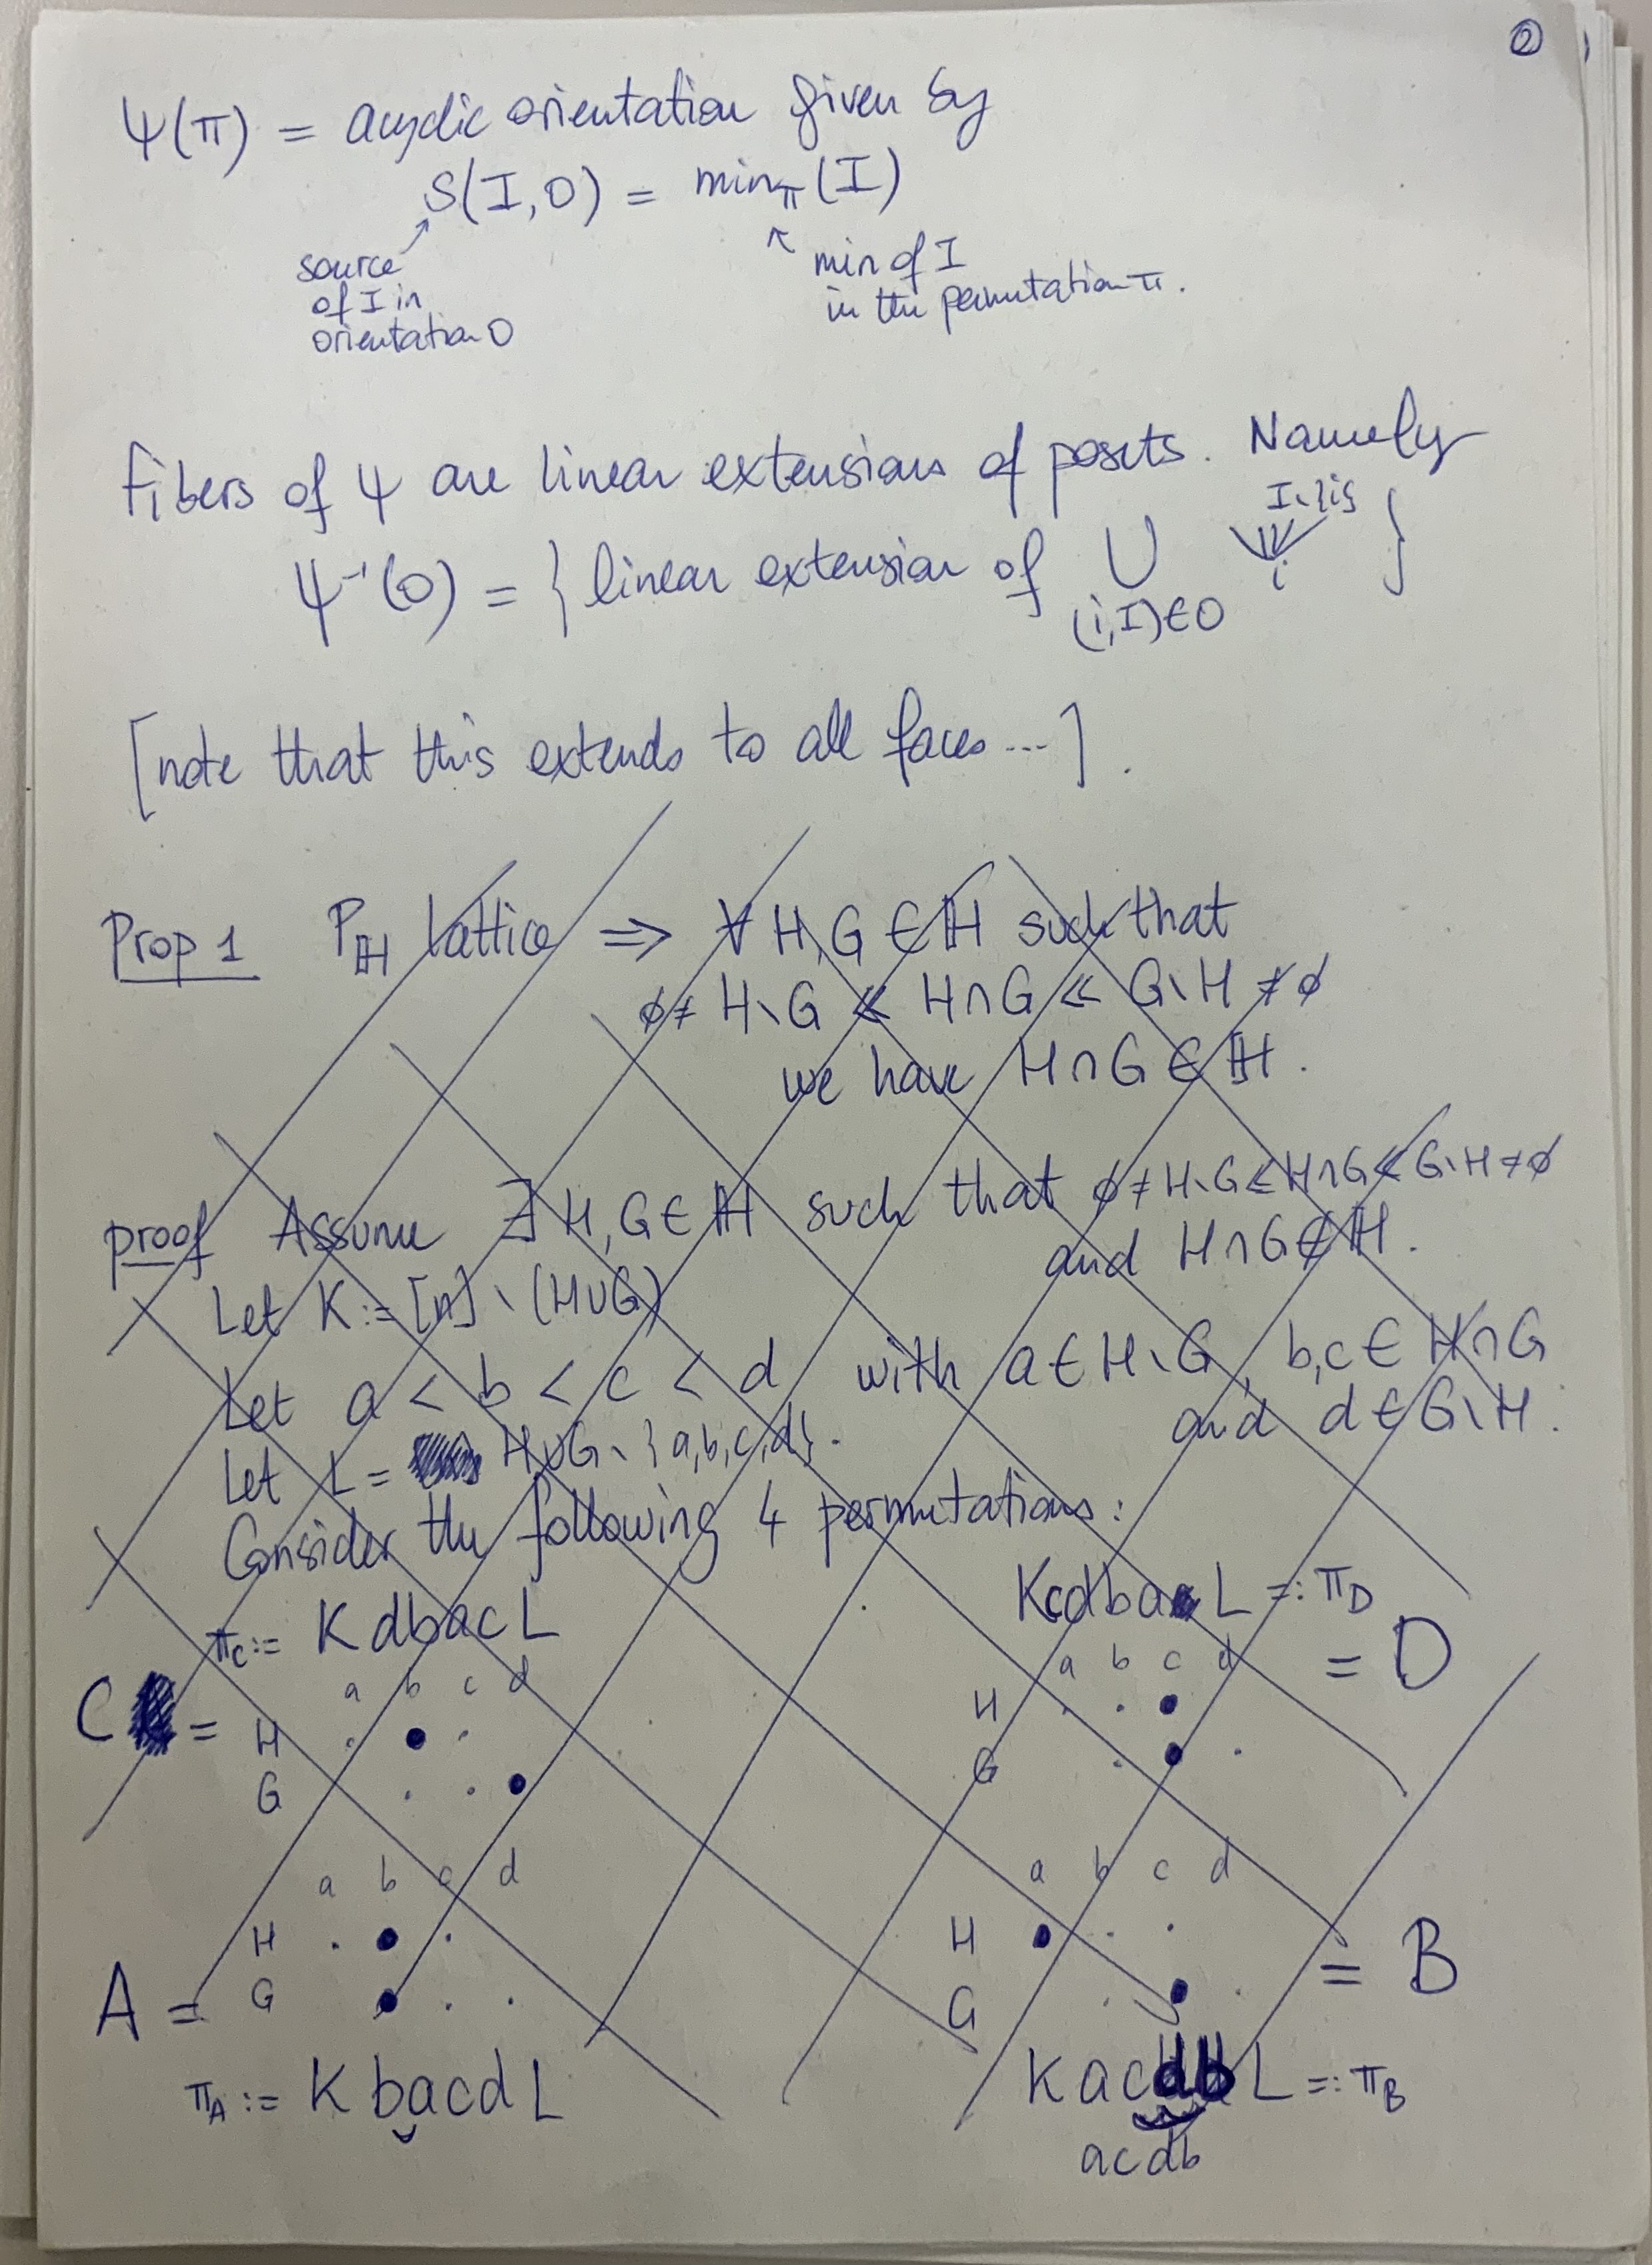 ②
Ψ(π) = acyclic orientation given by
S(I,O) = min_π(I)
source of I in orientation O
min of I in the permutation π.
Fibers of Ψ are linear extensions of posets. Namely
Ψ⁻¹(O) = { linear extension of ⋃_{(i,I)∈O} I∖{i} i }
[note that this extends to all faces ...].
Prop 1 P_ℍ lattice ⇒ ∀ H,G ∈ ℍ such that
∅ ≠ H∖G ≪ H∩G ≪ G∖H ≠ ∅
we have H∩G ∈ ℍ.
proof Assume ∃ H,G ∈ ℍ such that ∅≠H∖G≪H∩G≪G∖H≠∅
and H∩G ∉ ℍ.
Let K := [n]∖(H∪G)
Let a < b < c < d with a ∈ H∖G, b,c ∈ H∩G
and d ∈ G∖H.
Let L = H∪G∖{a,b,c,d}.
Consider the following 4 permutations:
π_C := K dbac L
Kcdba L =: π_D
C =
a b c d
H . ● .
G . . ●
a b c d
H . . ●
G . ● .
= D
A =
a b c d
H . ● .
G ● . .
π_A := K bacd L
a b c d
H ● . .
G . ● .
= B
K acdb L =: π_B
acdb